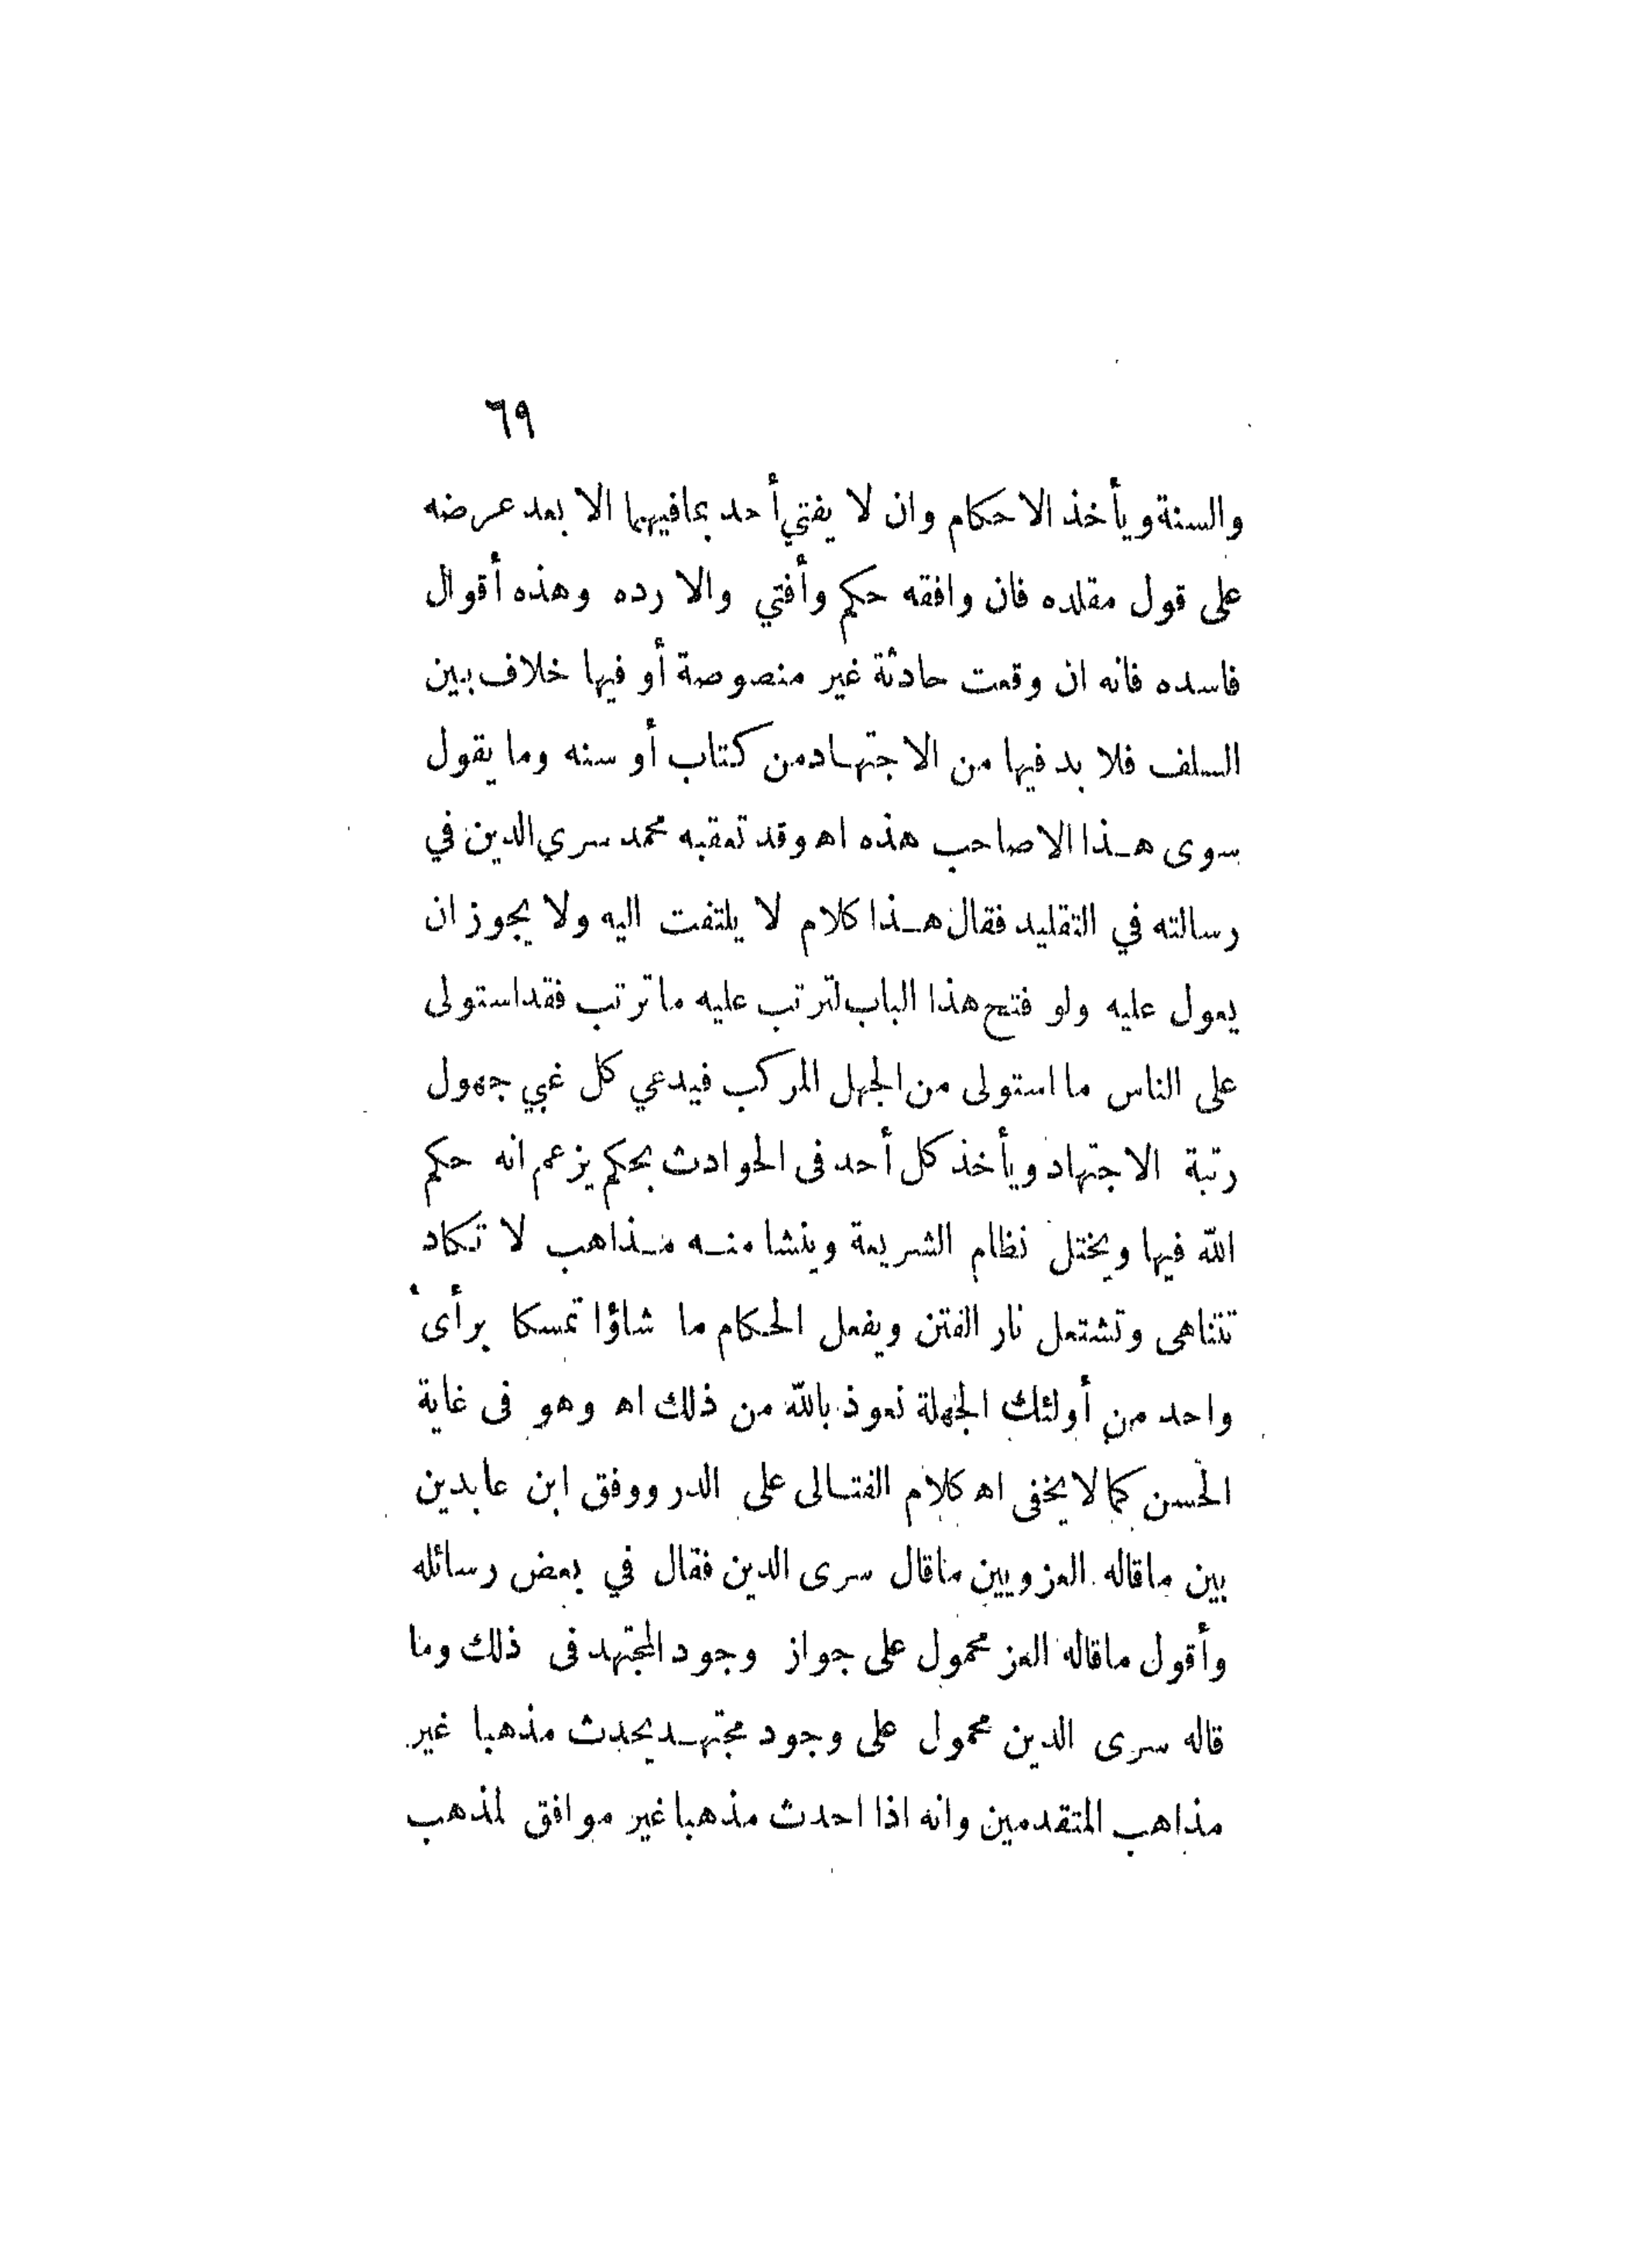 ٦٩
والسنة ويأخذ الاحكام وان لا يفتي أحد بما فيهما الا بعد عرضه
على قول مقلده فان وافقه حكم وأفتي والا رده وهذه أقوال
فاسده فانه ان وقعت حادثة غير منصوصة أو فيها خلاف بين
السلف فلا بد فيها من الاجتهاد من كتاب أو سنه وما يقول
سوى هذا الا صاحب هذه اه وقد تعقبه محمد سري الدين في
رسالته في التقليد فقال هذا كلام لا يلتفت اليه ولا يجوز ان
يعول عليه ولو فتح هذا الباب لترتب عليه ما ترتب فقد استولى
على الناس ما استولى من الجهل المركب فيدعي كل غبي جهول
رتبة الاجتهاد ويأخذ كل أحد فى الحوادث بحكم يزعم انه حكم
الله فيها ويختل نظام الشريعة وينشا منه مذاهب لا تكاد
تتناهى وتشتعل نار الفتن ويفعل الحكام ما شاؤا تمسكا برأى
واحد من أولئك الجهلة نعوذ بالله من ذلك اه وهو فى غاية
الحسن كما لا يخفى اه كلام الفتالى على الدر ووفق ابن عابدين
بين ماقاله العز وبين ماقال سرى الدين فقال في بعض رسائله
وأقول ماقاله العز محمول على جواز وجود المجتهد فى ذلك وما
قاله سرى الدين محمول على وجود مجتهد يحدث مذهبا غير
مذاهب المتقدمين وانه اذا احدث مذهبا غير موافق لمذهب